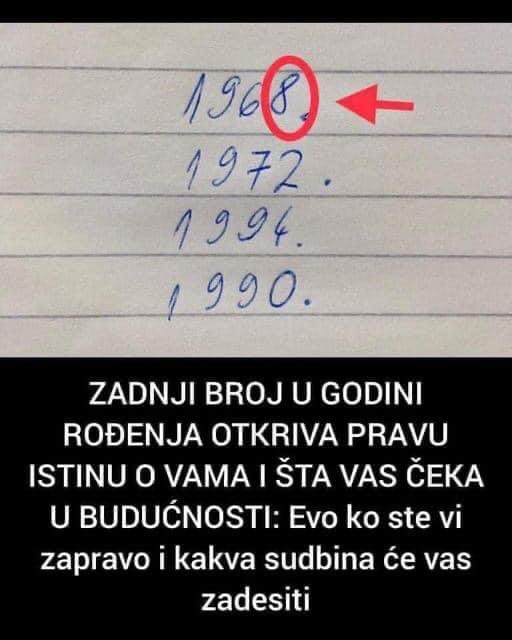 1968.
1972.
1994.
1990.
ZADNJI BROJ U GODINI
ROĐENJA OTKRIVA PRAVU
ISTINU O VAMA I ŠTA VAS ČEKA
U BUDUĆNOSTI: Evo ko ste vi
zapravo i kakva sudbina će vas
zadesiti